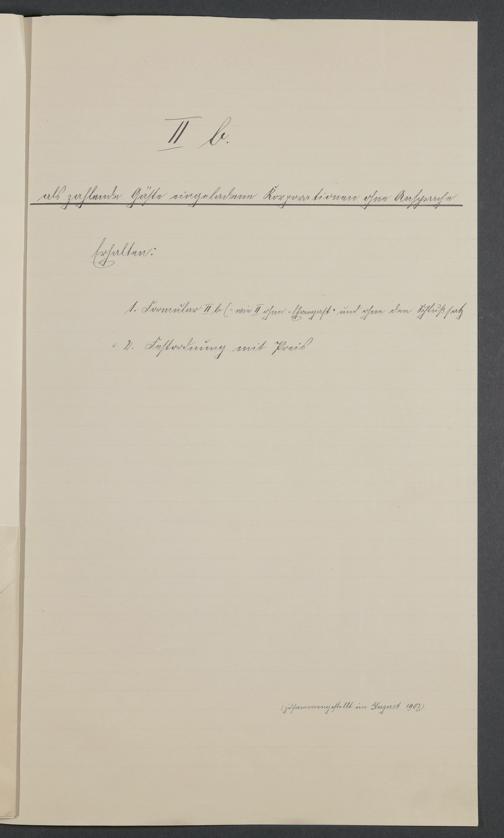 II b.
als zahlende Gäste eingeladene Korporationen ohne Ansprache
Erhalten:
1. Formular II b (: wie II ohne "Ehrengast" und ohne den Schlußsatz
2. Festordnung mit Preis
(zusammengestellt im August 1903)